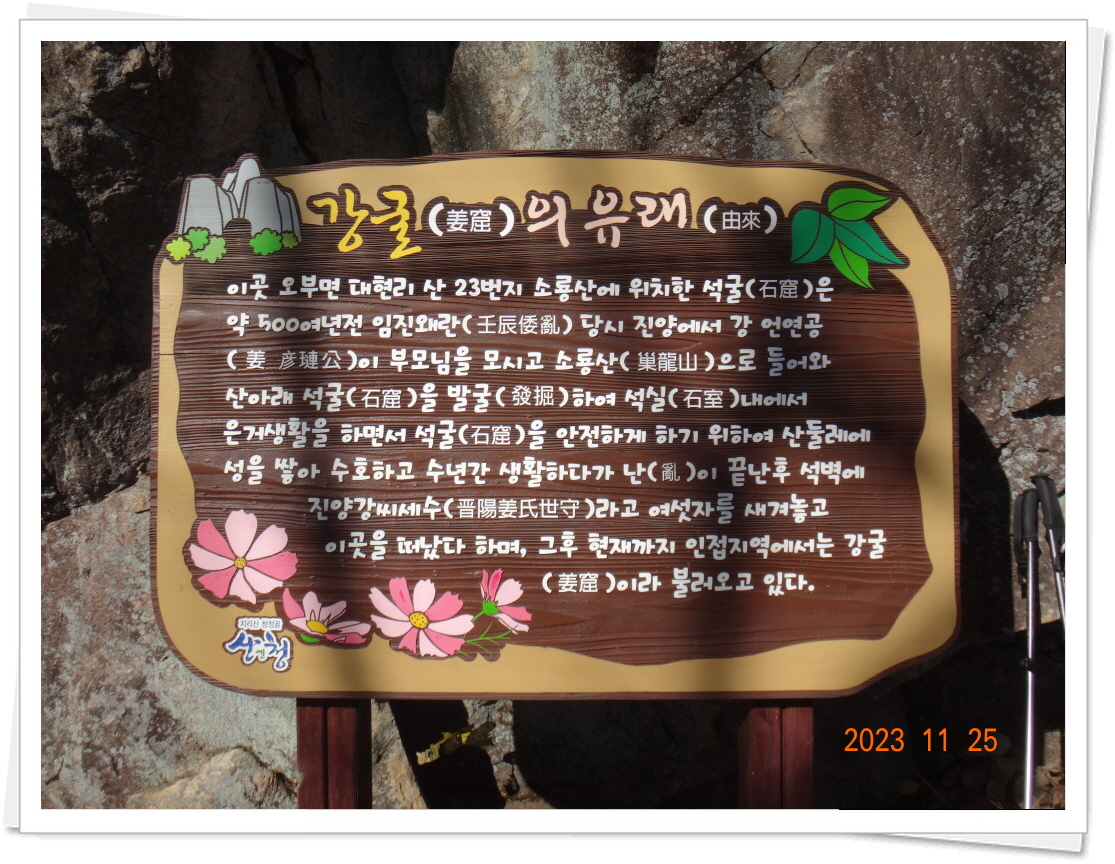 강굴(姜窟)의 유래(由來)
이곳 오부면 대현리 산 23번지 소룡산에 위치한 석굴(石窟)은
약 500여년전 임진왜란(壬辰倭亂) 당시 진양에서 강 언연공
(姜 彦璉公)이 부모님을 모시고 소룡산(巢龍山)으로 들어와
산아래 석굴(石窟)을 발굴(發掘)하여 석실(石室)내에서
은거생활을 하면서 석굴(石窟)을 안전하게 하기 위하여 산둘레에
성을 쌓아 수호하고 수년간 생활하다가 난(亂)이 끝난후 석벽에
진양강씨세수(晋陽姜氏世守)라고 여섯자를 새겨놓고
이곳을 떠났다 하며, 그후 현재까지 인접지역에서는 강굴
(姜窟)이라 불러오고 있다.
지리산 청정골
산엔청
2023 11 25